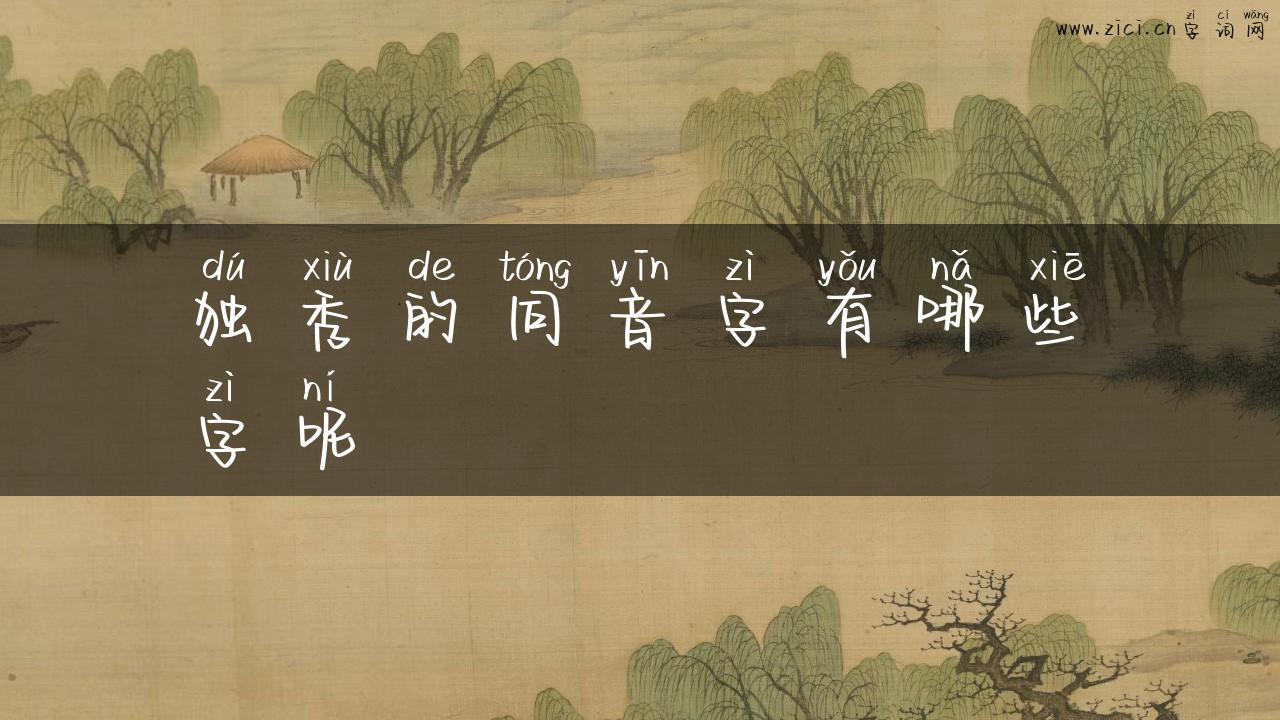 zì cí wǎng
www.zici.cn 字 词 网
dú xiù de tóng yīn zì yǒu nǎ xiē
独 秀 的 同 音 字 有 哪 些
zì ní
字 呢